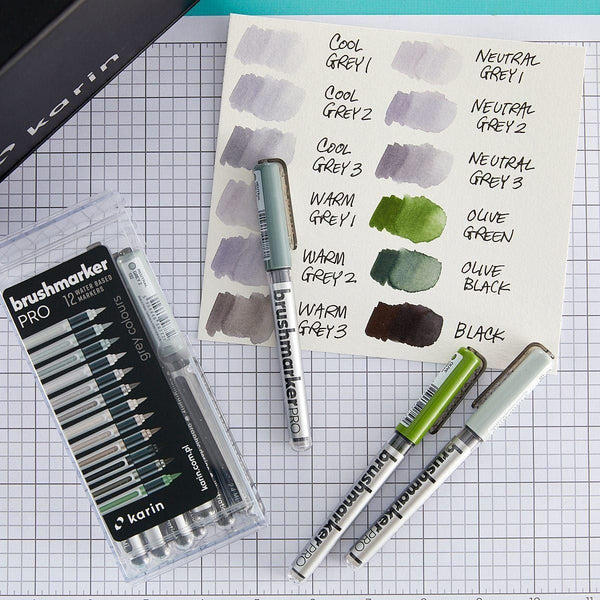 karin
COOL
GREY 1
NEUTRAL
GREY 1
COOL
GREY 2
NEUTRAL
GREY 2
COOL
GREY 3
NEUTRAL
GREY 3
WARM
GREY 1
OLIVE
GREEN
WARM
GREY 2
OLIVE
BLACK
WARM
GREY 3
BLACK
brushmarker
PRO
12 WATER BASED
MARKERS
grey colours
karin.com.pl
karin
brushmarkerPRO
brushmarkerPRO
brushmarkerPRO